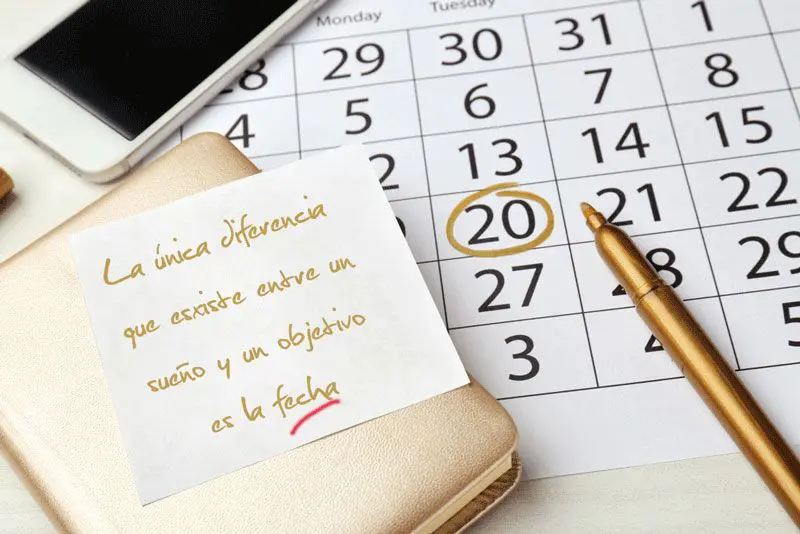 Monday Tuesday
28 29 30 31 1
4 5 6 7 8
13 14 15
20 21 22
27 28 29
3
La única diferencia
que esxiste entre un
sueño y un objetivo
es la fecha